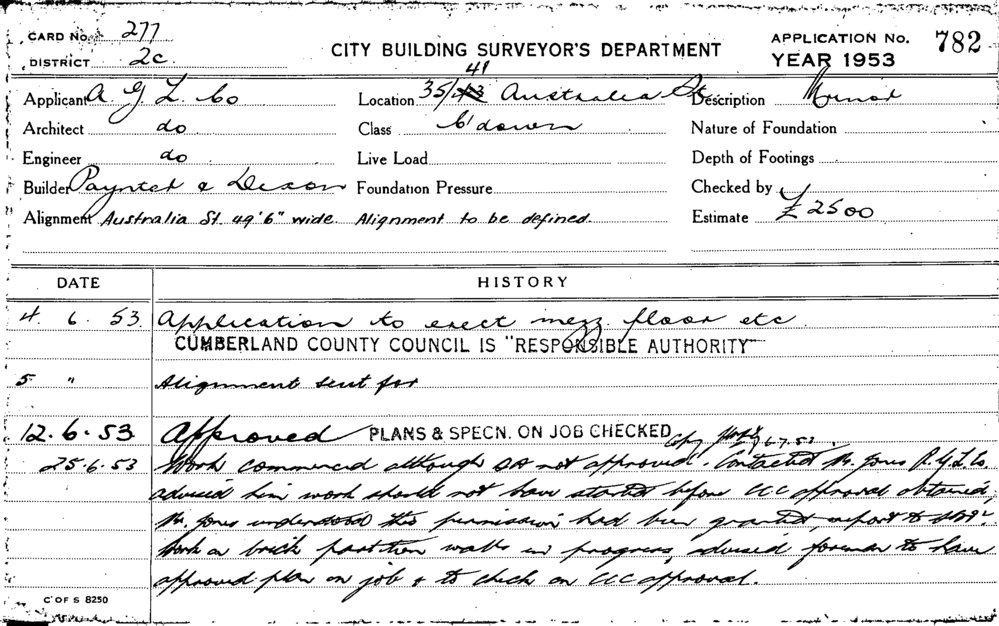 CARD No. 277
DISTRICT 2c
CITY BUILDING SURVEYOR'S DEPARTMENT
APPLICATION No. 782
YEAR 1953
Applicant A. G. L. Co
Location 35/41 Australia St
Description Minor
Architect do
Class C'down
Nature of Foundation
Engineer do
Live Load
Depth of Footings
Builder Paynter & Dixon
Foundation Pressure
Checked by
Alignment Australia St. 49'6" wide. Alignment to be defined.
Estimate £2500
DATE HISTORY
4. 6. 53. Application to erect mezz. floor etc
CUMBERLAND COUNTY COUNCIL IS "RESPONSIBLE AUTHORITY"
5 " Alignment sent for
12.6.53 Approved PLANS & SPECN. ON JOB CHECKED 6.7.53.
25.6.53 Work commenced although not approved. Contacted Mr. Jones A.G.L. Co
advised him work should not have started before CC approval obtained,
Mr. Jones understood this permission had been granted, report to
Work on brick partition walls in progress, advised foreman to have
approved plan on job & to check on CC approval.
C OF S 8250